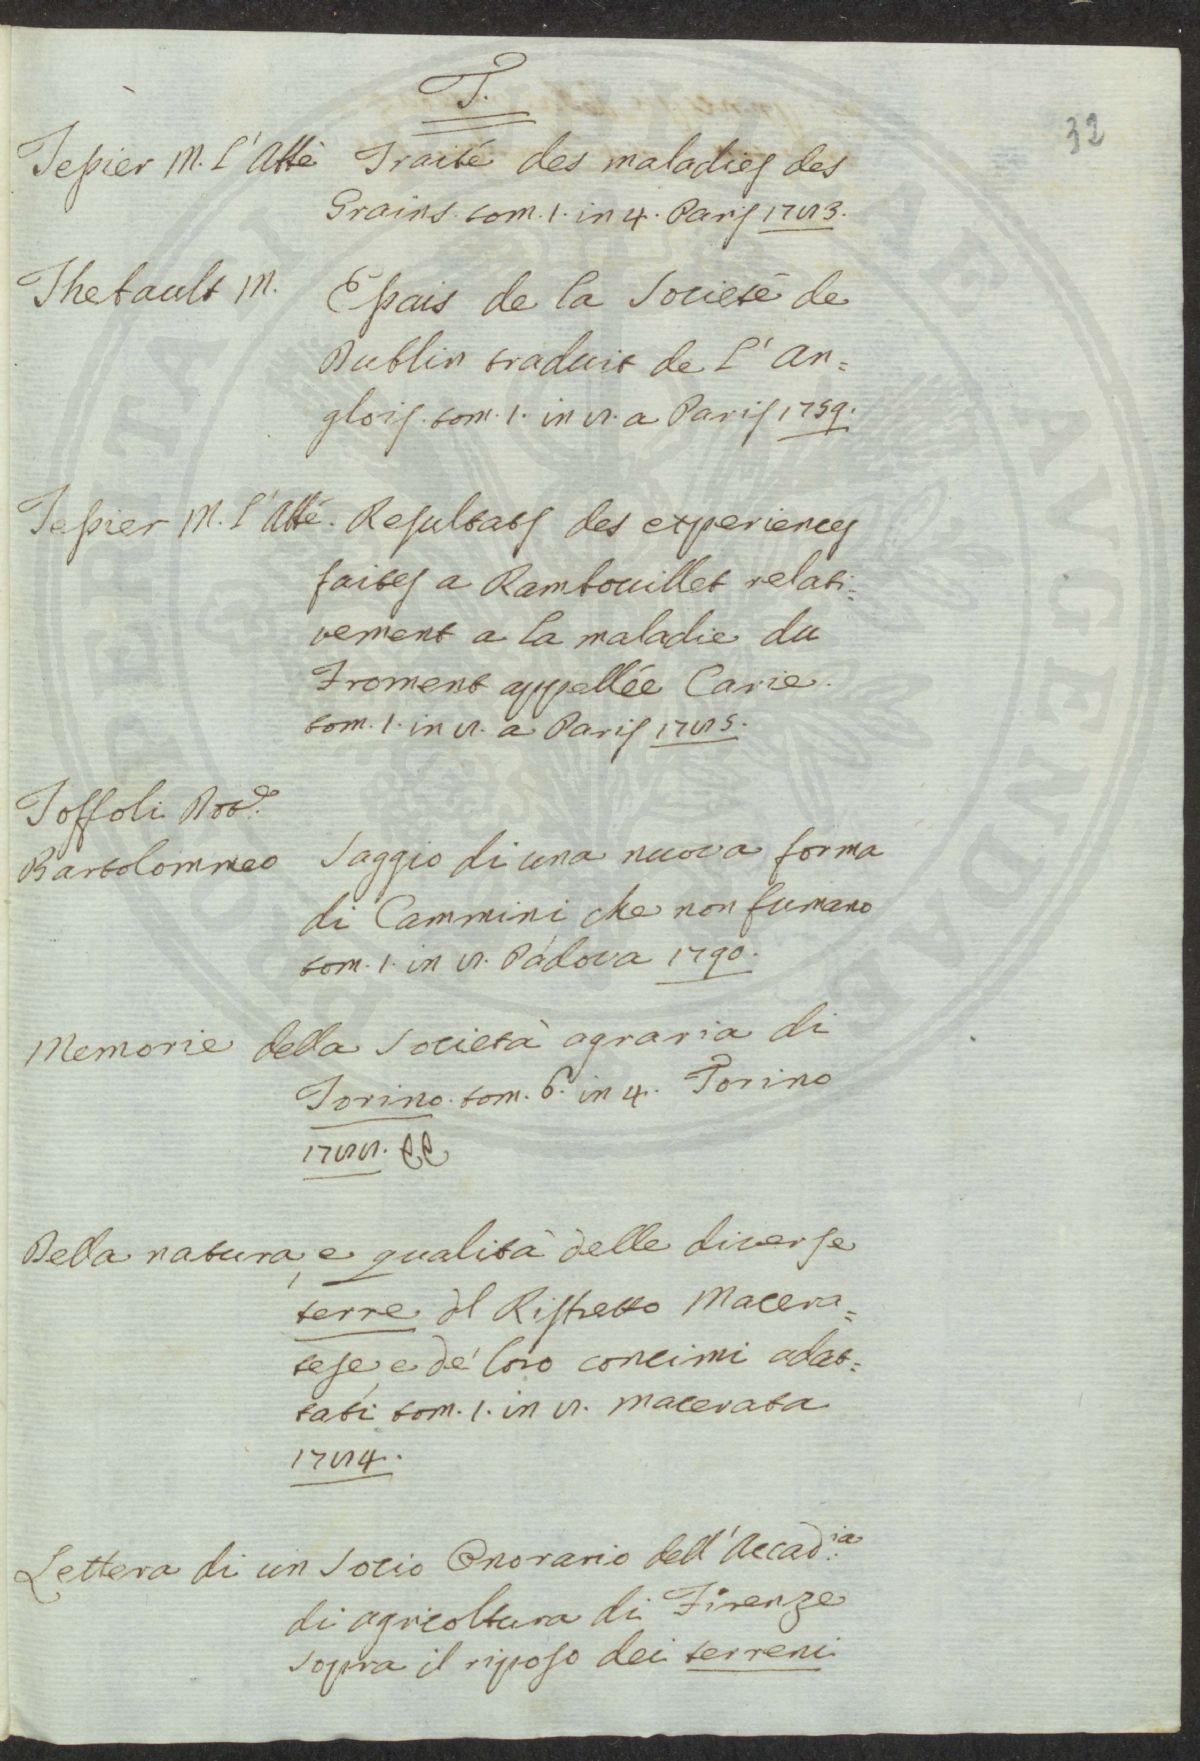 T.
32
Tessier M. l'Abbè Traité des maladies des
Grains. tom. 1. in 4. Paris 1783.
Thebault M. Essais de la Societé de
Dublin traduit de l'An=
glois. tom. 1. in 8. a Paris 1759.
Tessier M. l'Abbé. Resultats des experiences
faites a Rambouillet relati=
vement a la maladie du
Froment appellée Carie.
tom. 1. in 8. a Paris 1785.
Toffoli Dot.e
Bartolommeo Saggio di una nuova forma
di Cammini che non fumano
tom. 1. in 8. Padova 1790.
Memorie della Società agraria di
Torino. tom. 6. in 4. Torino
1788.
Della natura, e qualità delle diverse
terre del Ristretto Macera=
tese e de' loro concimi adat=
tati tom. 1. in 8. Macerata
1784.
Lettera di un Socio Onorario dell'Accad.ia
di agricoltura di Firenze
sopra il riposo dei terreni